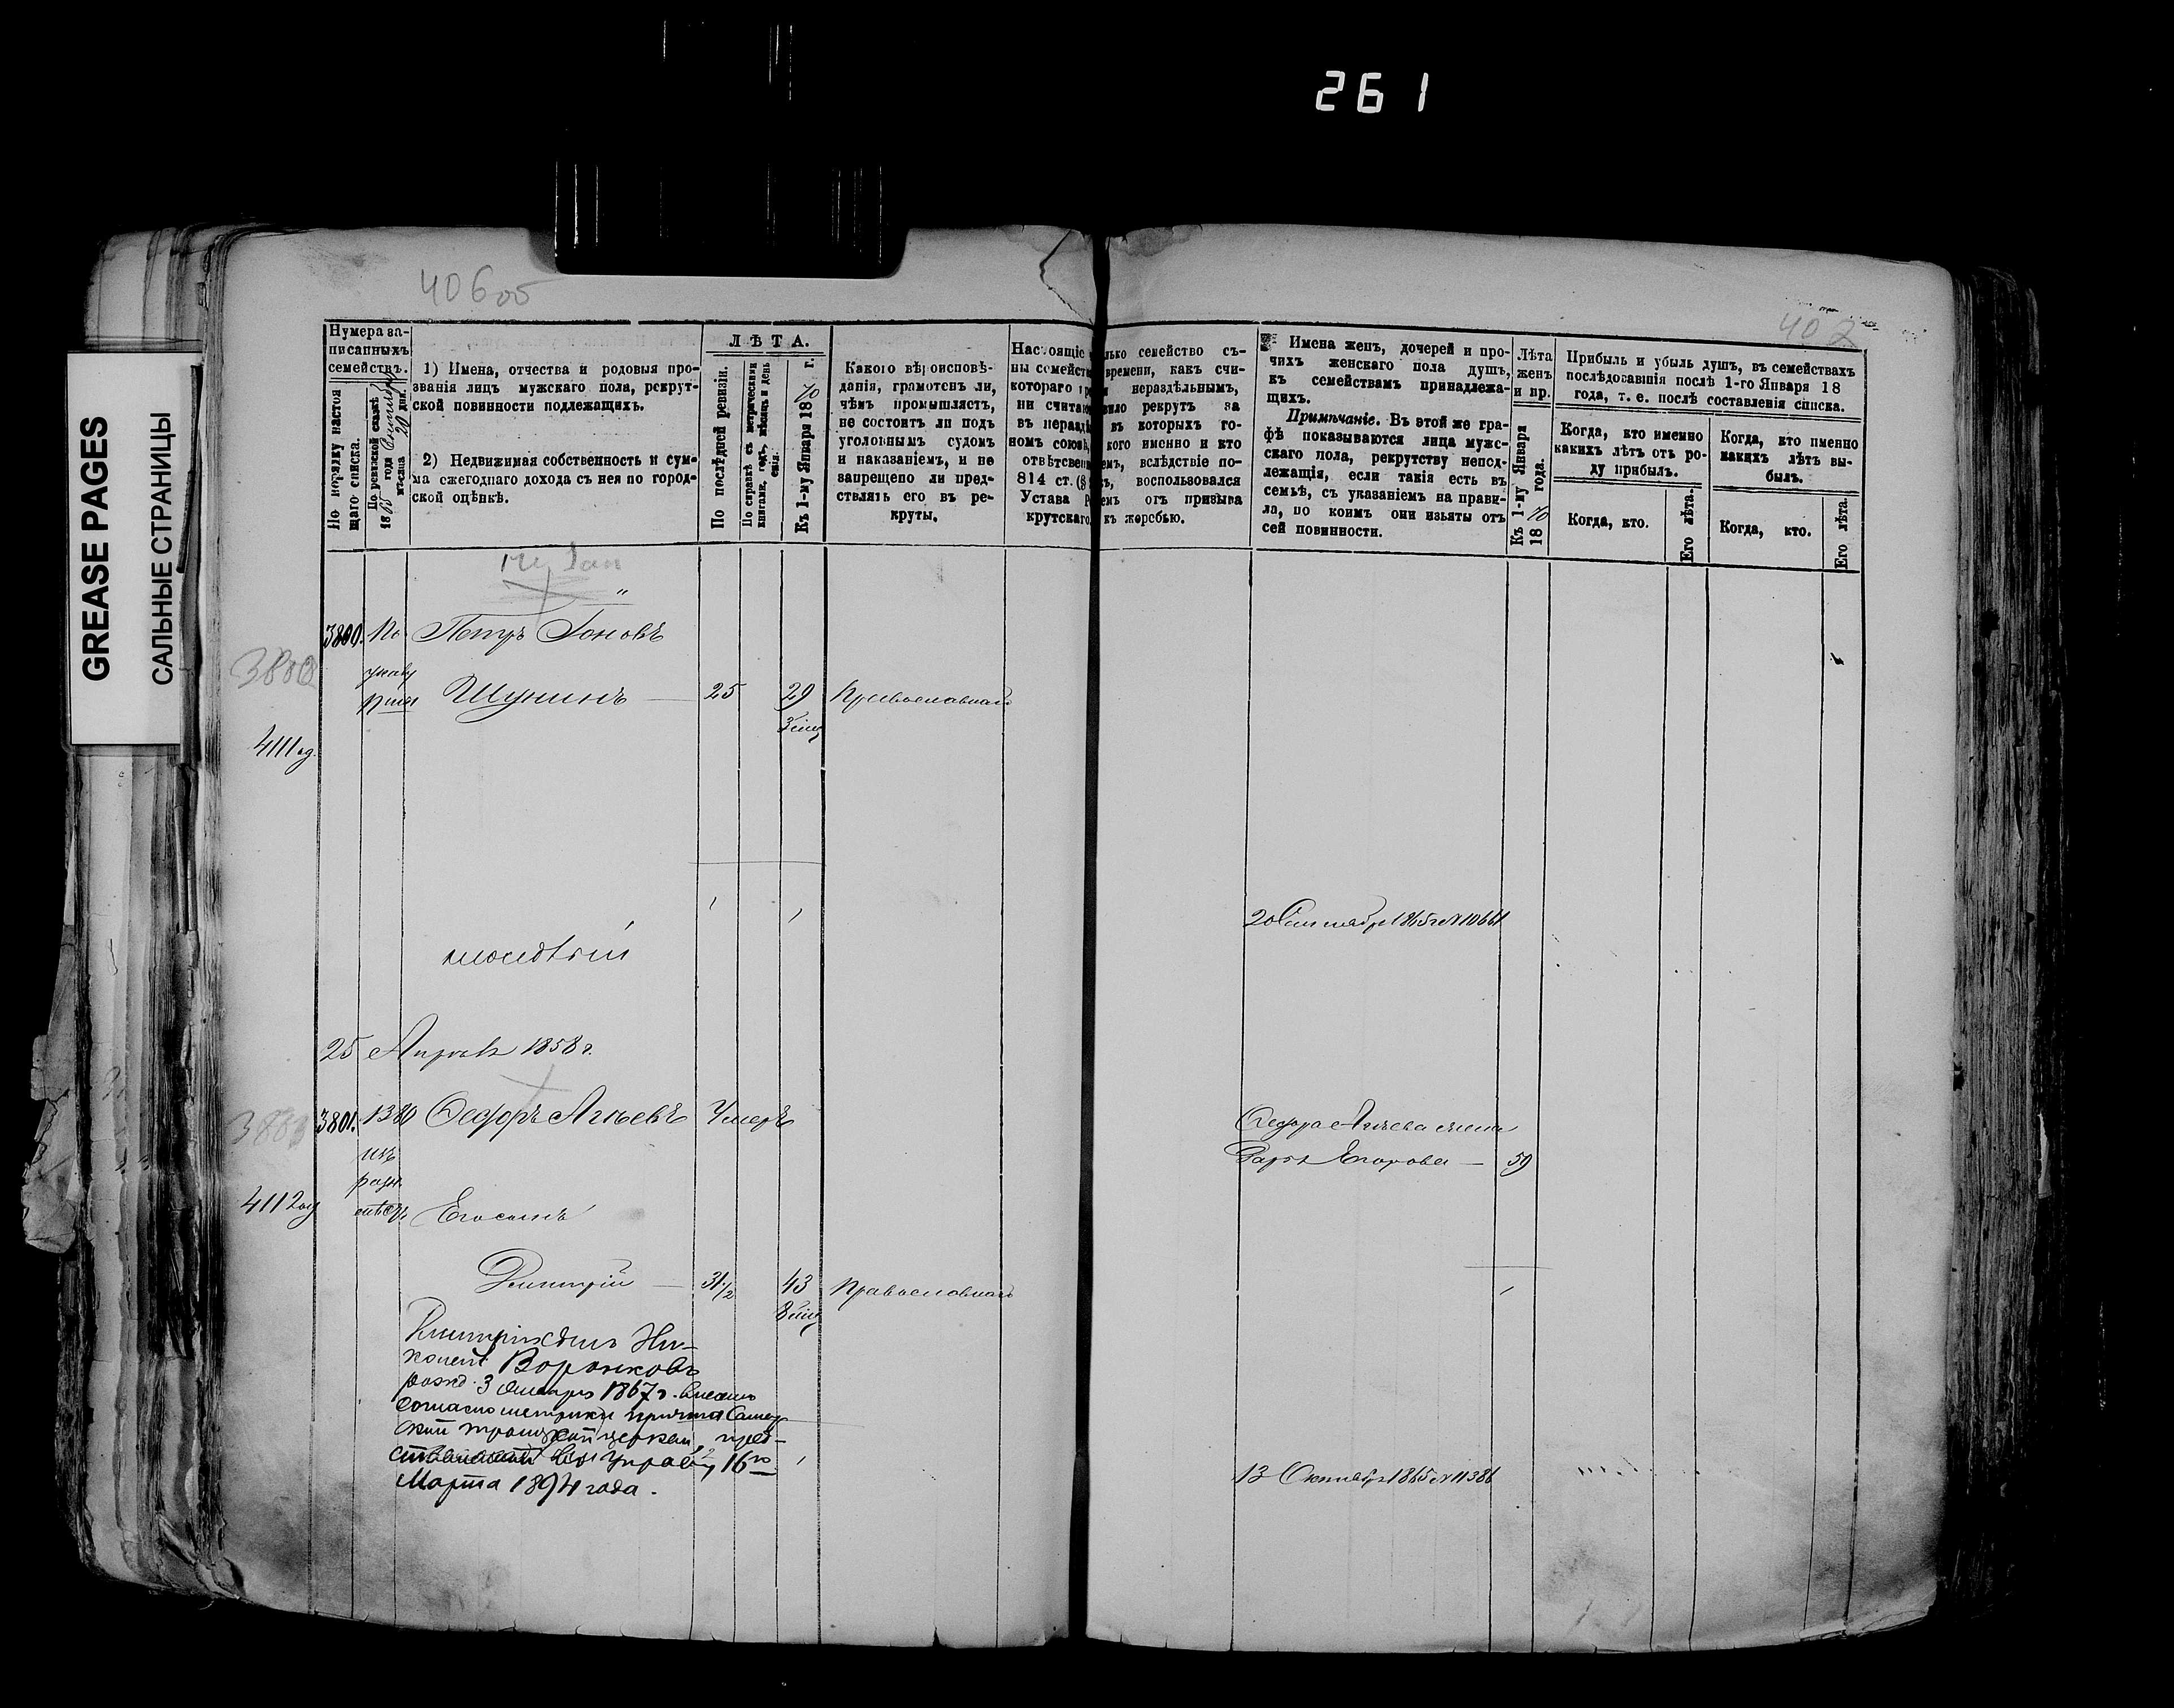 261
GREASE PAGES
САЛЬНЫЕ СТРАНИЦЫ
406 об
407
Нумера за-
писанныхъ
семействъ.
По порядку настоя
щаго списка.
По ревизской сказкѣ
18 года
мѣсяца 20 дня.
1) Имена, отчества и родовыя про-
званія лицъ мужскаго пола, рекрут-
ской повинности подлежащихъ.
2) Недвижимая собственность и сум-
ма ежегоднаго дохода съ нея по город-
ской оцѣнкѣ.
ЛѢТА.
По послѣдней ревизіи.
По справкѣ съ метрическими
книгами, годъ, мѣсяцъ и день
Къ 1-му Января 1870 г.
Какого вѣроисповѣ-
данія, грамотенъ ли,
чѣмъ промышляетъ,
не состоитъ ли подъ
уголовнымъ судомъ
и наказаніемъ, и не
запрещено ли пред-
ставлять его въ ре-
круты.
Настоящіе
ны семейств
котораго
ни считаю
въ нераздѣ
номъ союзѣ,
отвѣтствен
814 ст. (§
Устава Р
крутскаго
лько семейство съ-
времени, какъ счи-
нераздѣльнымъ,
вило рекрутъ за
въ которыхъ го-
кого именно и кто
емъ, вслѣдствіе по-
воспользовался
емъ отъ призыва
къ жеребью.
Имена женъ, дочерей и про-
чихъ женскаго пола душъ,
къ семействамъ принадлежа-
щихъ.
Примѣчаніе. Въ этой же гра-
фѣ показываются лица мужс-
скаго пола, рекрутству непод-
лежащія, если такія есть въ
семьѣ, съ указаніемъ на прави-
ла, по коимъ они изъяты отъ
сей повинности.
Лѣта
женъ
и пр.
Къ 1-му Января
1870 года.
Прибыль и убыль душъ, въ семействахъ
послѣдовавшія послѣ 1-го Января 18
года, т. е. послѣ составленія списка.
Когда, кто именно
какихъ лѣтъ отъ ро-
ду прибылъ.
Когда, кто именно
какихъ лѣтъ вы-
былъ.
Когда, кто.
Его лѣта.
Когда, кто.
Его лѣта.
3800. По Петръ
указу
Шунинъ — 25 29 Православнаго
4111
20 Сентября 1865 г № 10661
25 Апрѣля 1858 г.
3801. 1380 Ѳедоръ Агѣевъ Умеръ
Ѳедора Агѣева жена
изъ
Дарья Егорова — 59
4112
Его сынъ
Дмитрій — 31 1/2 43 Православнаго
Дмитрія сынъ Ни-
Воронковъ
рожд. 3 1867 г. внесенъ
согласно метрики причта
церкви, пред-
въ Управу 16го
Марта 1894 года.
13 Октября 1865 № 11386